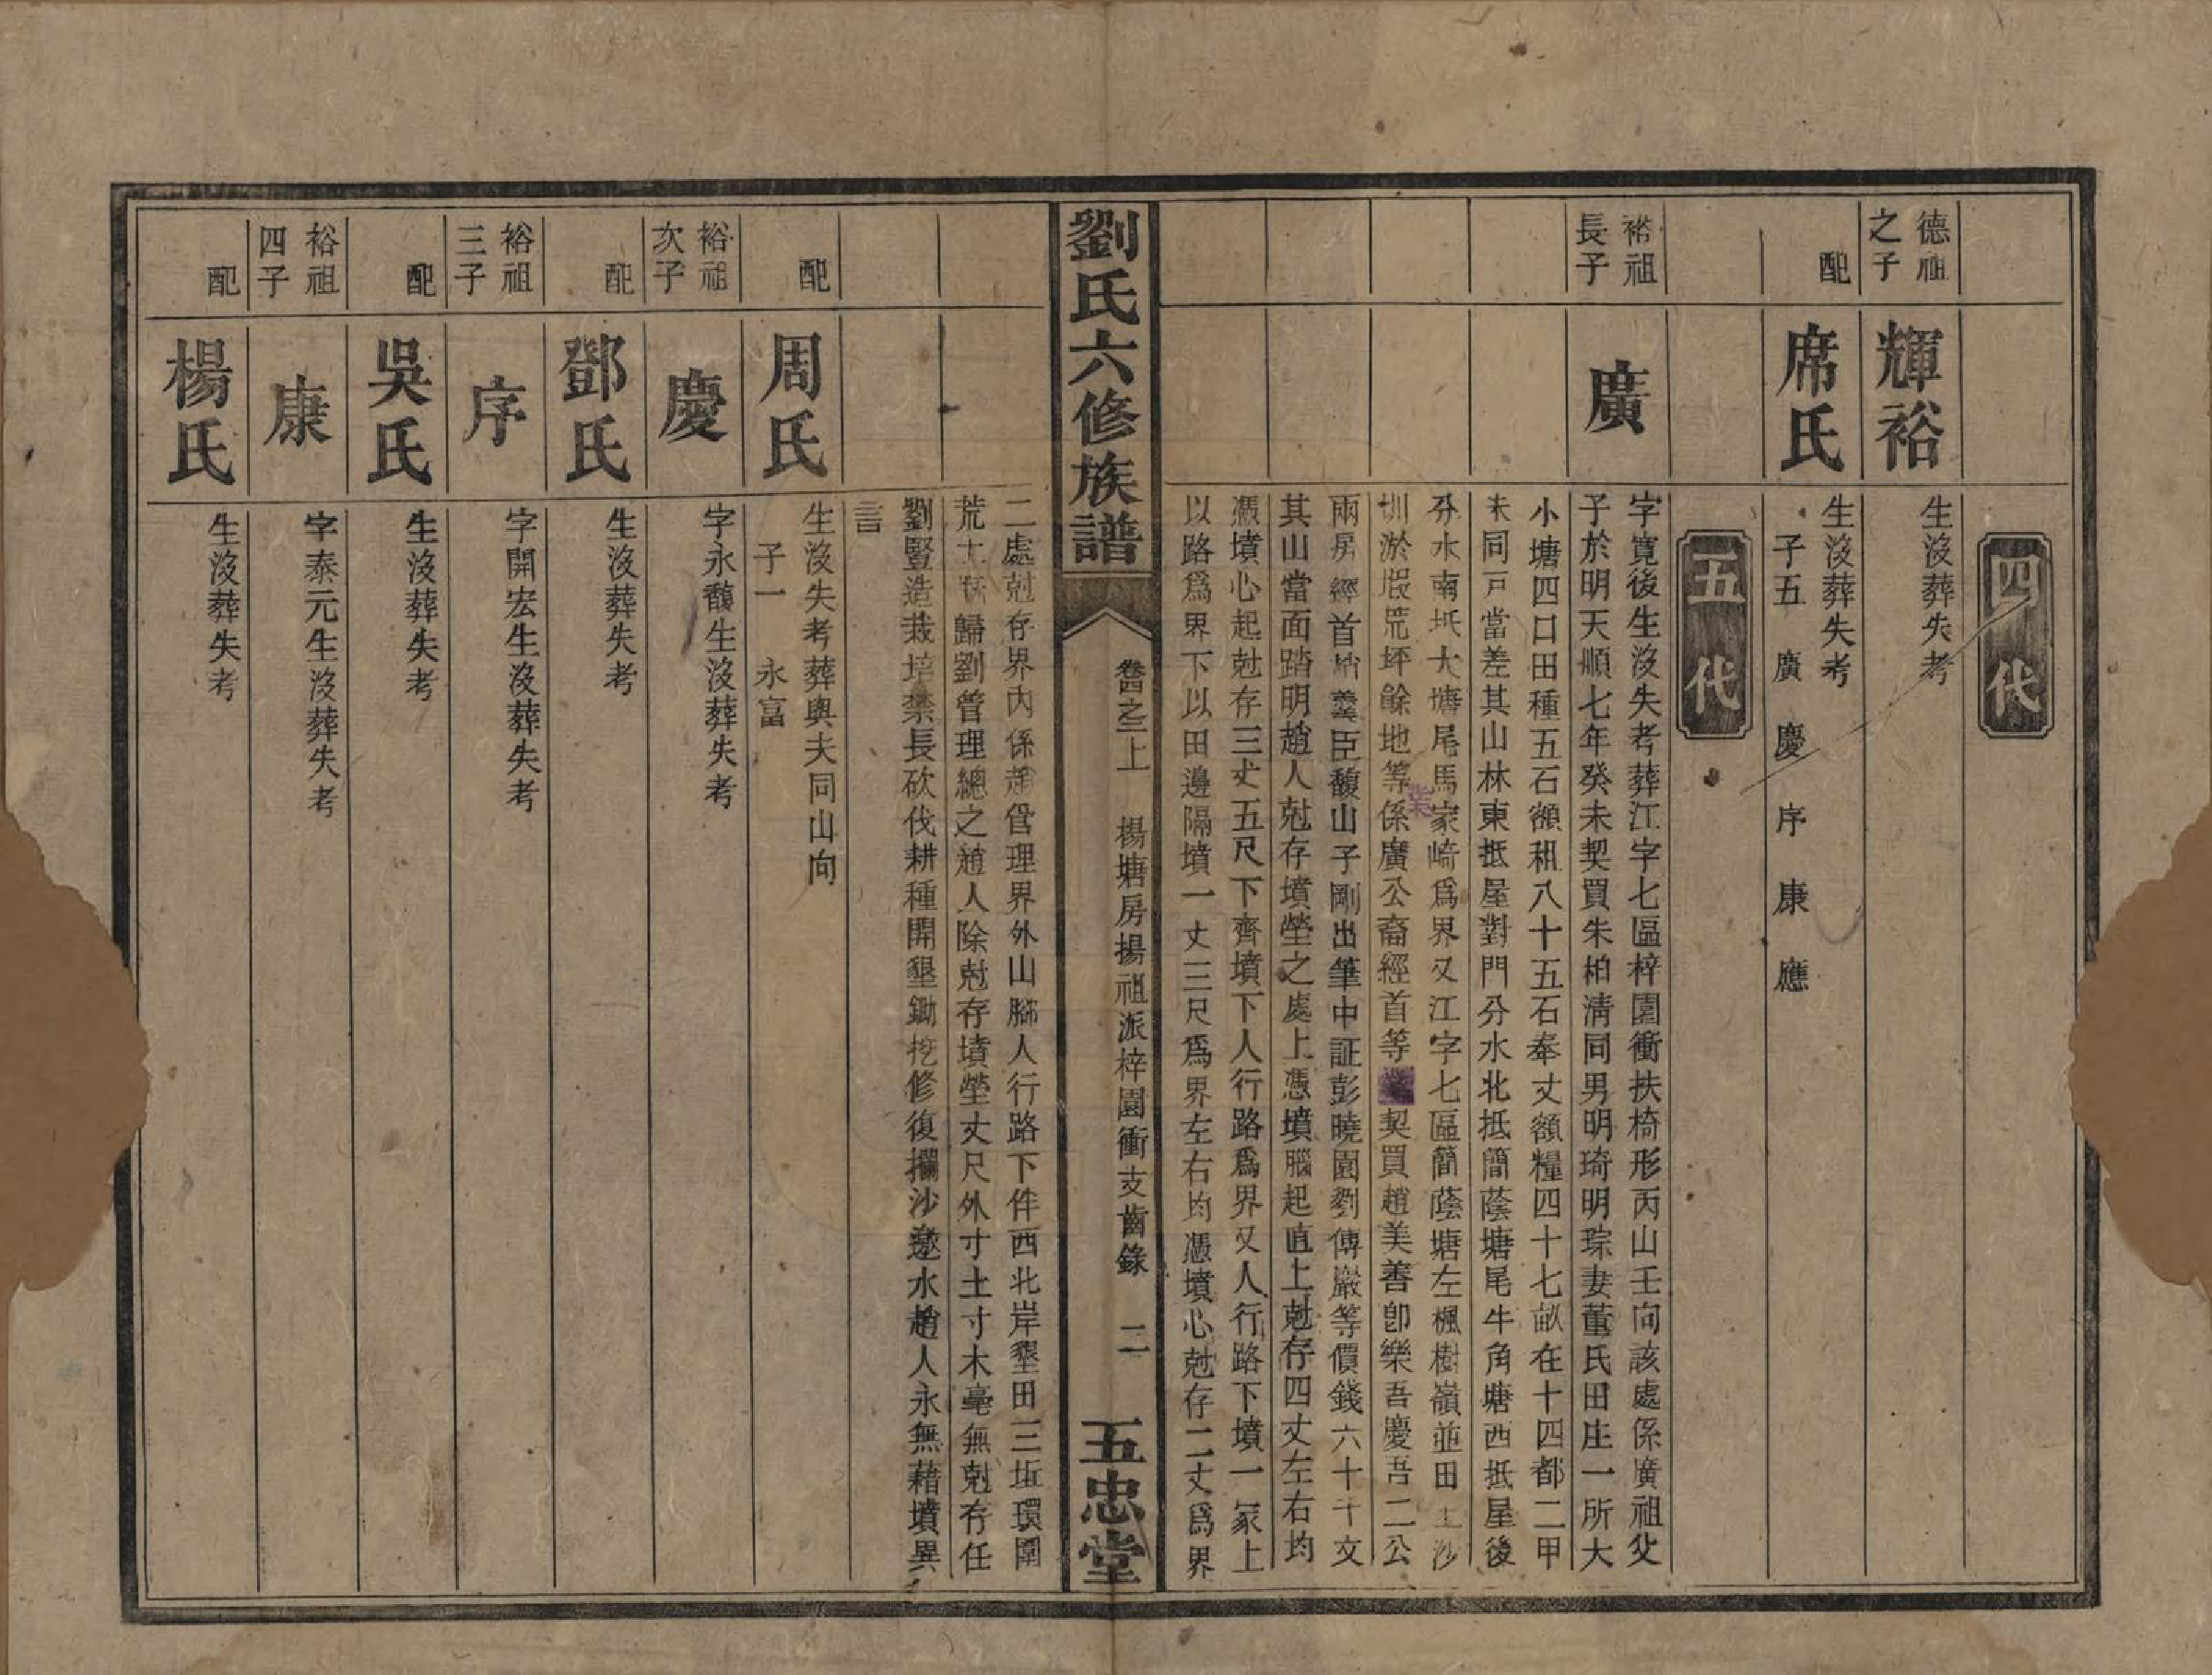 四代
德祖之子
輝裕
生沒葬失考
配
席氏
生沒葬失考
子五 廣 慶 序 康 應
五代
裕祖長子
廣
字寬後生沒失考葬江字七區梓園衝扶椅形丙山壬向該處係廣祖父
子於明天順七年癸未契買朱柏清同男明琦明琮妻董氏田庄一所大
小塘四口田種五石額租八十五石奉丈額糧四十七畝在十四都二甲
朱同戶當差其山林東抵屋對門分水北抵簡蔭塘尾牛角塘西抵屋後
分水南抵大塘尾馬家崎爲界又江字七區簡蔭塘左楓樹嶺並田 沙
圳淤塅荒坪餘地等係廣公裔經首等業契買趙美善卽樂吾慶吾二公
兩房經首 羹臣馥山子剛出筆中証彭曉園劉傳巖等價錢六十千文
其山當面踏明趙人尅存墳塋之處上憑墳腦起直上尅存四丈左右均
憑墳心起尅存三丈五尺下齊墳下人行路爲界又人行路下墳一冢上
以路爲界下以田邊隔墳一丈三尺爲界左右均憑墳心尅存二丈爲界
劉氏六修族譜
卷之二上 楊塘房揚祖派梓園衝支齒錄 二
五忠堂
二處尅存界內係趙管理界外山腳人行路下伴西北岸墾田三坵環圍
荒土 歸劉管理總之趙人除尅存墳塋丈尺外寸土寸木毫無尅存任
劉豎造栽培禁長砍伐耕種開墾鋤挖修復攔沙邀水趙人永無藉墳異
言
配
周氏
生沒失考葬與夫同山向
子一 永富
裕祖次子
慶
字永馥生沒葬失考
配
鄧氏
生沒葬失考
裕祖三子
序
字開宏生沒葬失考
配
吳氏
生沒葬失考
裕祖四子
康
字泰元生沒葬失考
配
楊氏
生沒葬失考